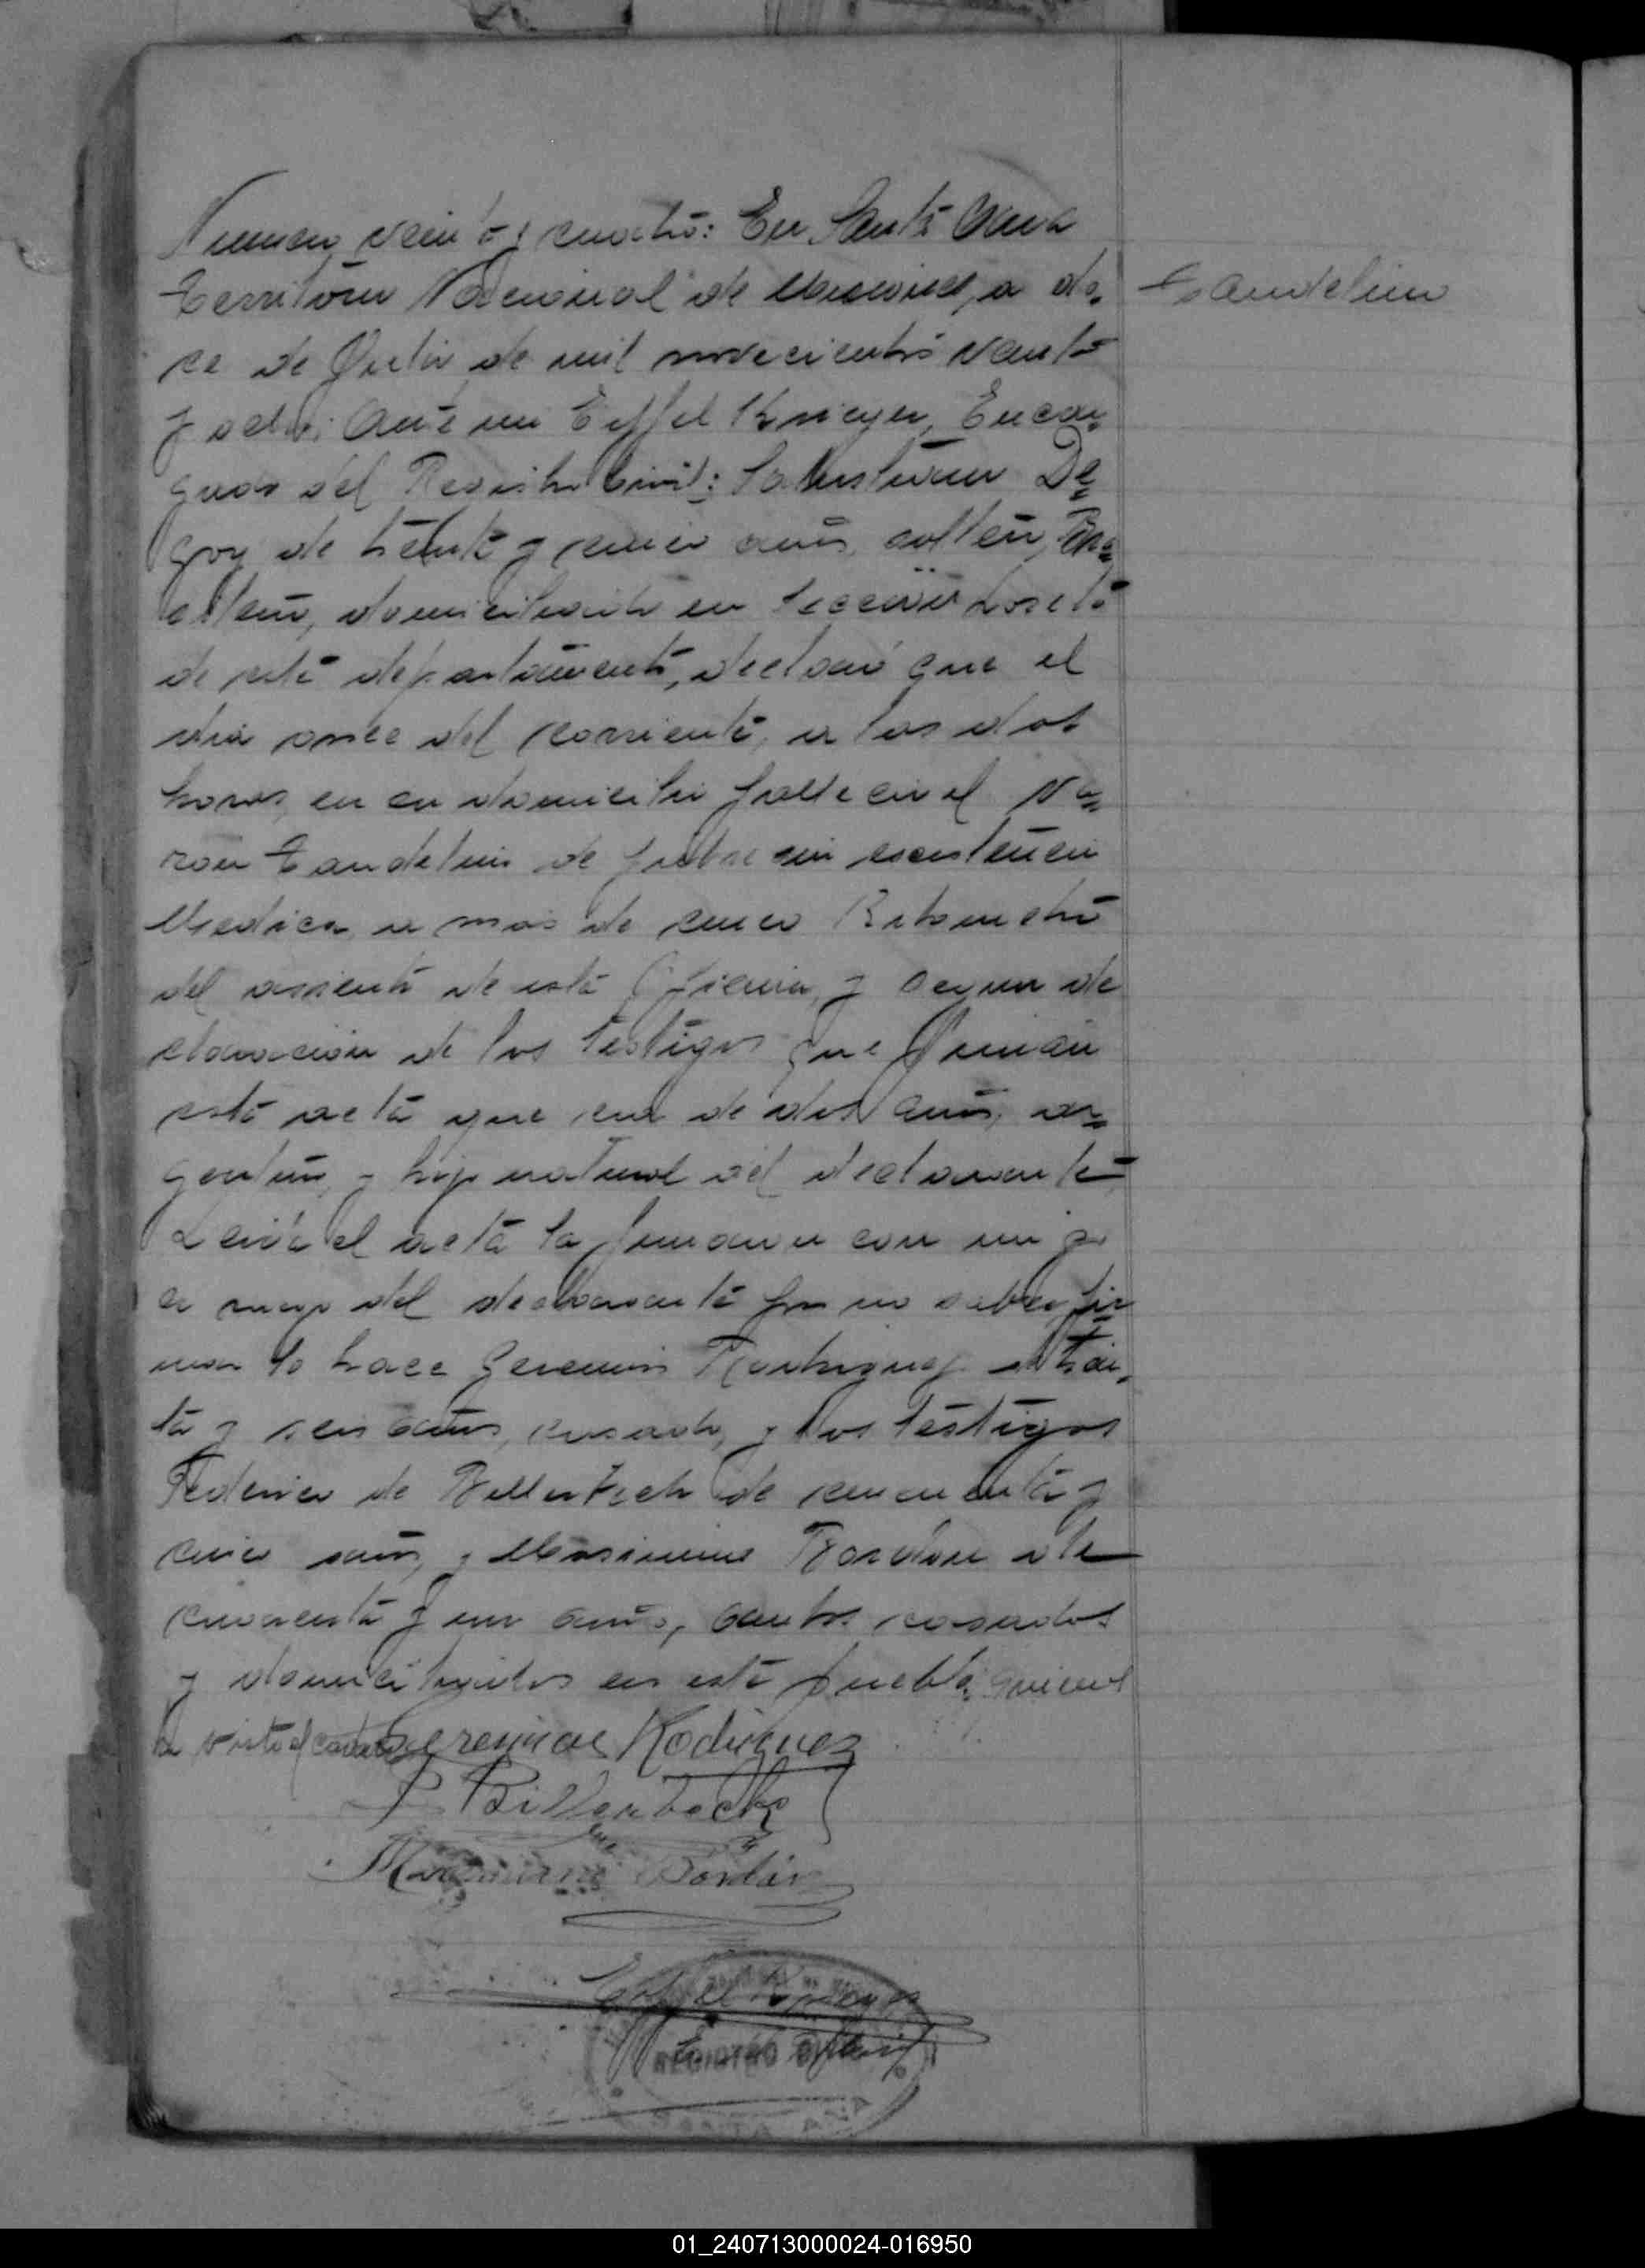 Numero veinte y cuatro: En Santa Ana
Territorio Nacional de Misiones, a do-
Candelino
ce de Julio de mil novecientos veinte
y ocho; Ante mi Eiffel Krieger, Encar-
gado del Registro Civil:
de treinta y cinco años, soltero,
domiciliado en Seccion Loreto
de este departamento, declaró que el
dia once del corriente, a las dos
horas, en su domicilio fallecio el va-
ron Candelino de fiebre sin asistencia
Medica, a mas de cinco Kilometro
del asiento de esta Oficina, y segun de
claracion de los testigos que firman
esta acta que era de dos años, ar-
gentino, y hijo natural del declarante,
Leida el acta la firmaron con migo
a ruego del declarante por no saber fir-
mar lo hace Geremias Rodriguez de trein-
ta y seis años, casado, y los testigos
Federico de Billerbeck de cincuenta y
cinco años, y Maximino Bordon de
cuarenta y un años, ambos casados
y domiciliados en este pueblo, quienes
ha visto el cadaver Geremias Rodriguez
F Billerbeck
Maximino Bordon
Eiffel Krieger
REGISTRO CIVIL
SANTA ANA
01_240713000024-016950